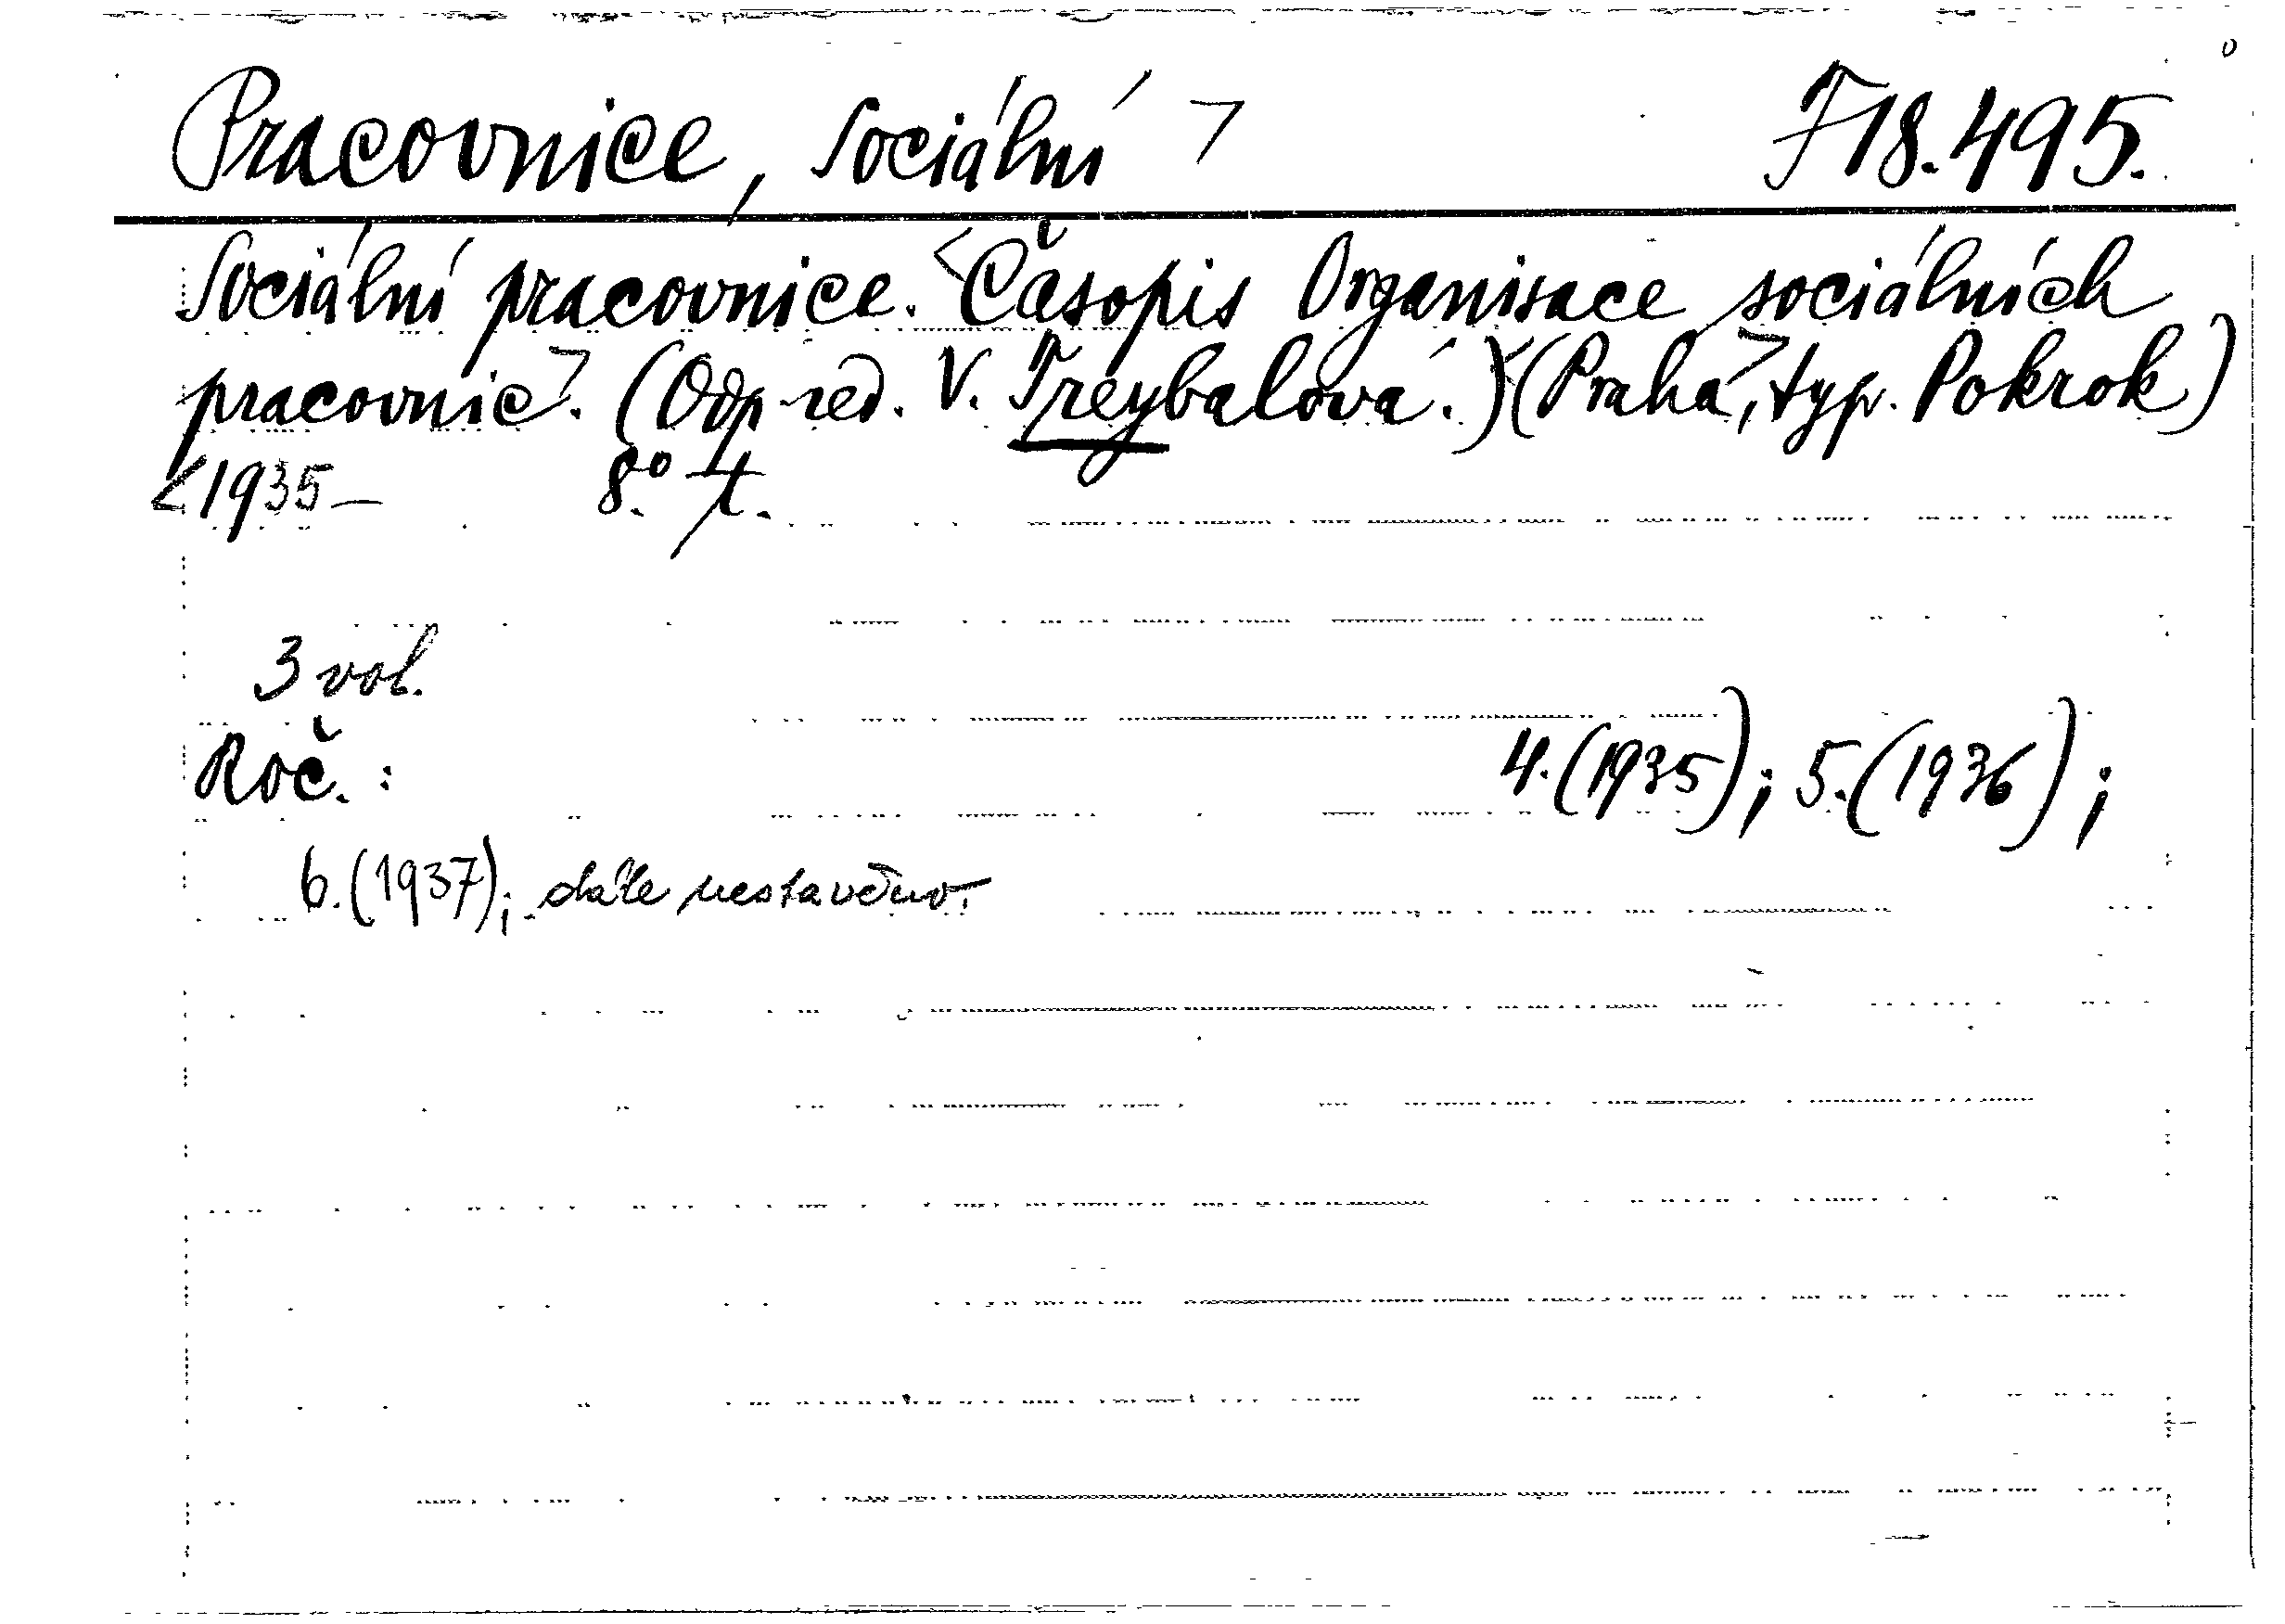 Pracovnice, Sociální > F 18.495.
Sociální pracovnice. <Časopis Organisace sociálních
pracovnic>. (Odp. red. V. Treybalová.) (Praha>, typ. Pokrok)
<1935— 8.° t.
3 vol.
Roč.: 4.(1935); 5.(1936);
6.(1937); dále nestavěno.